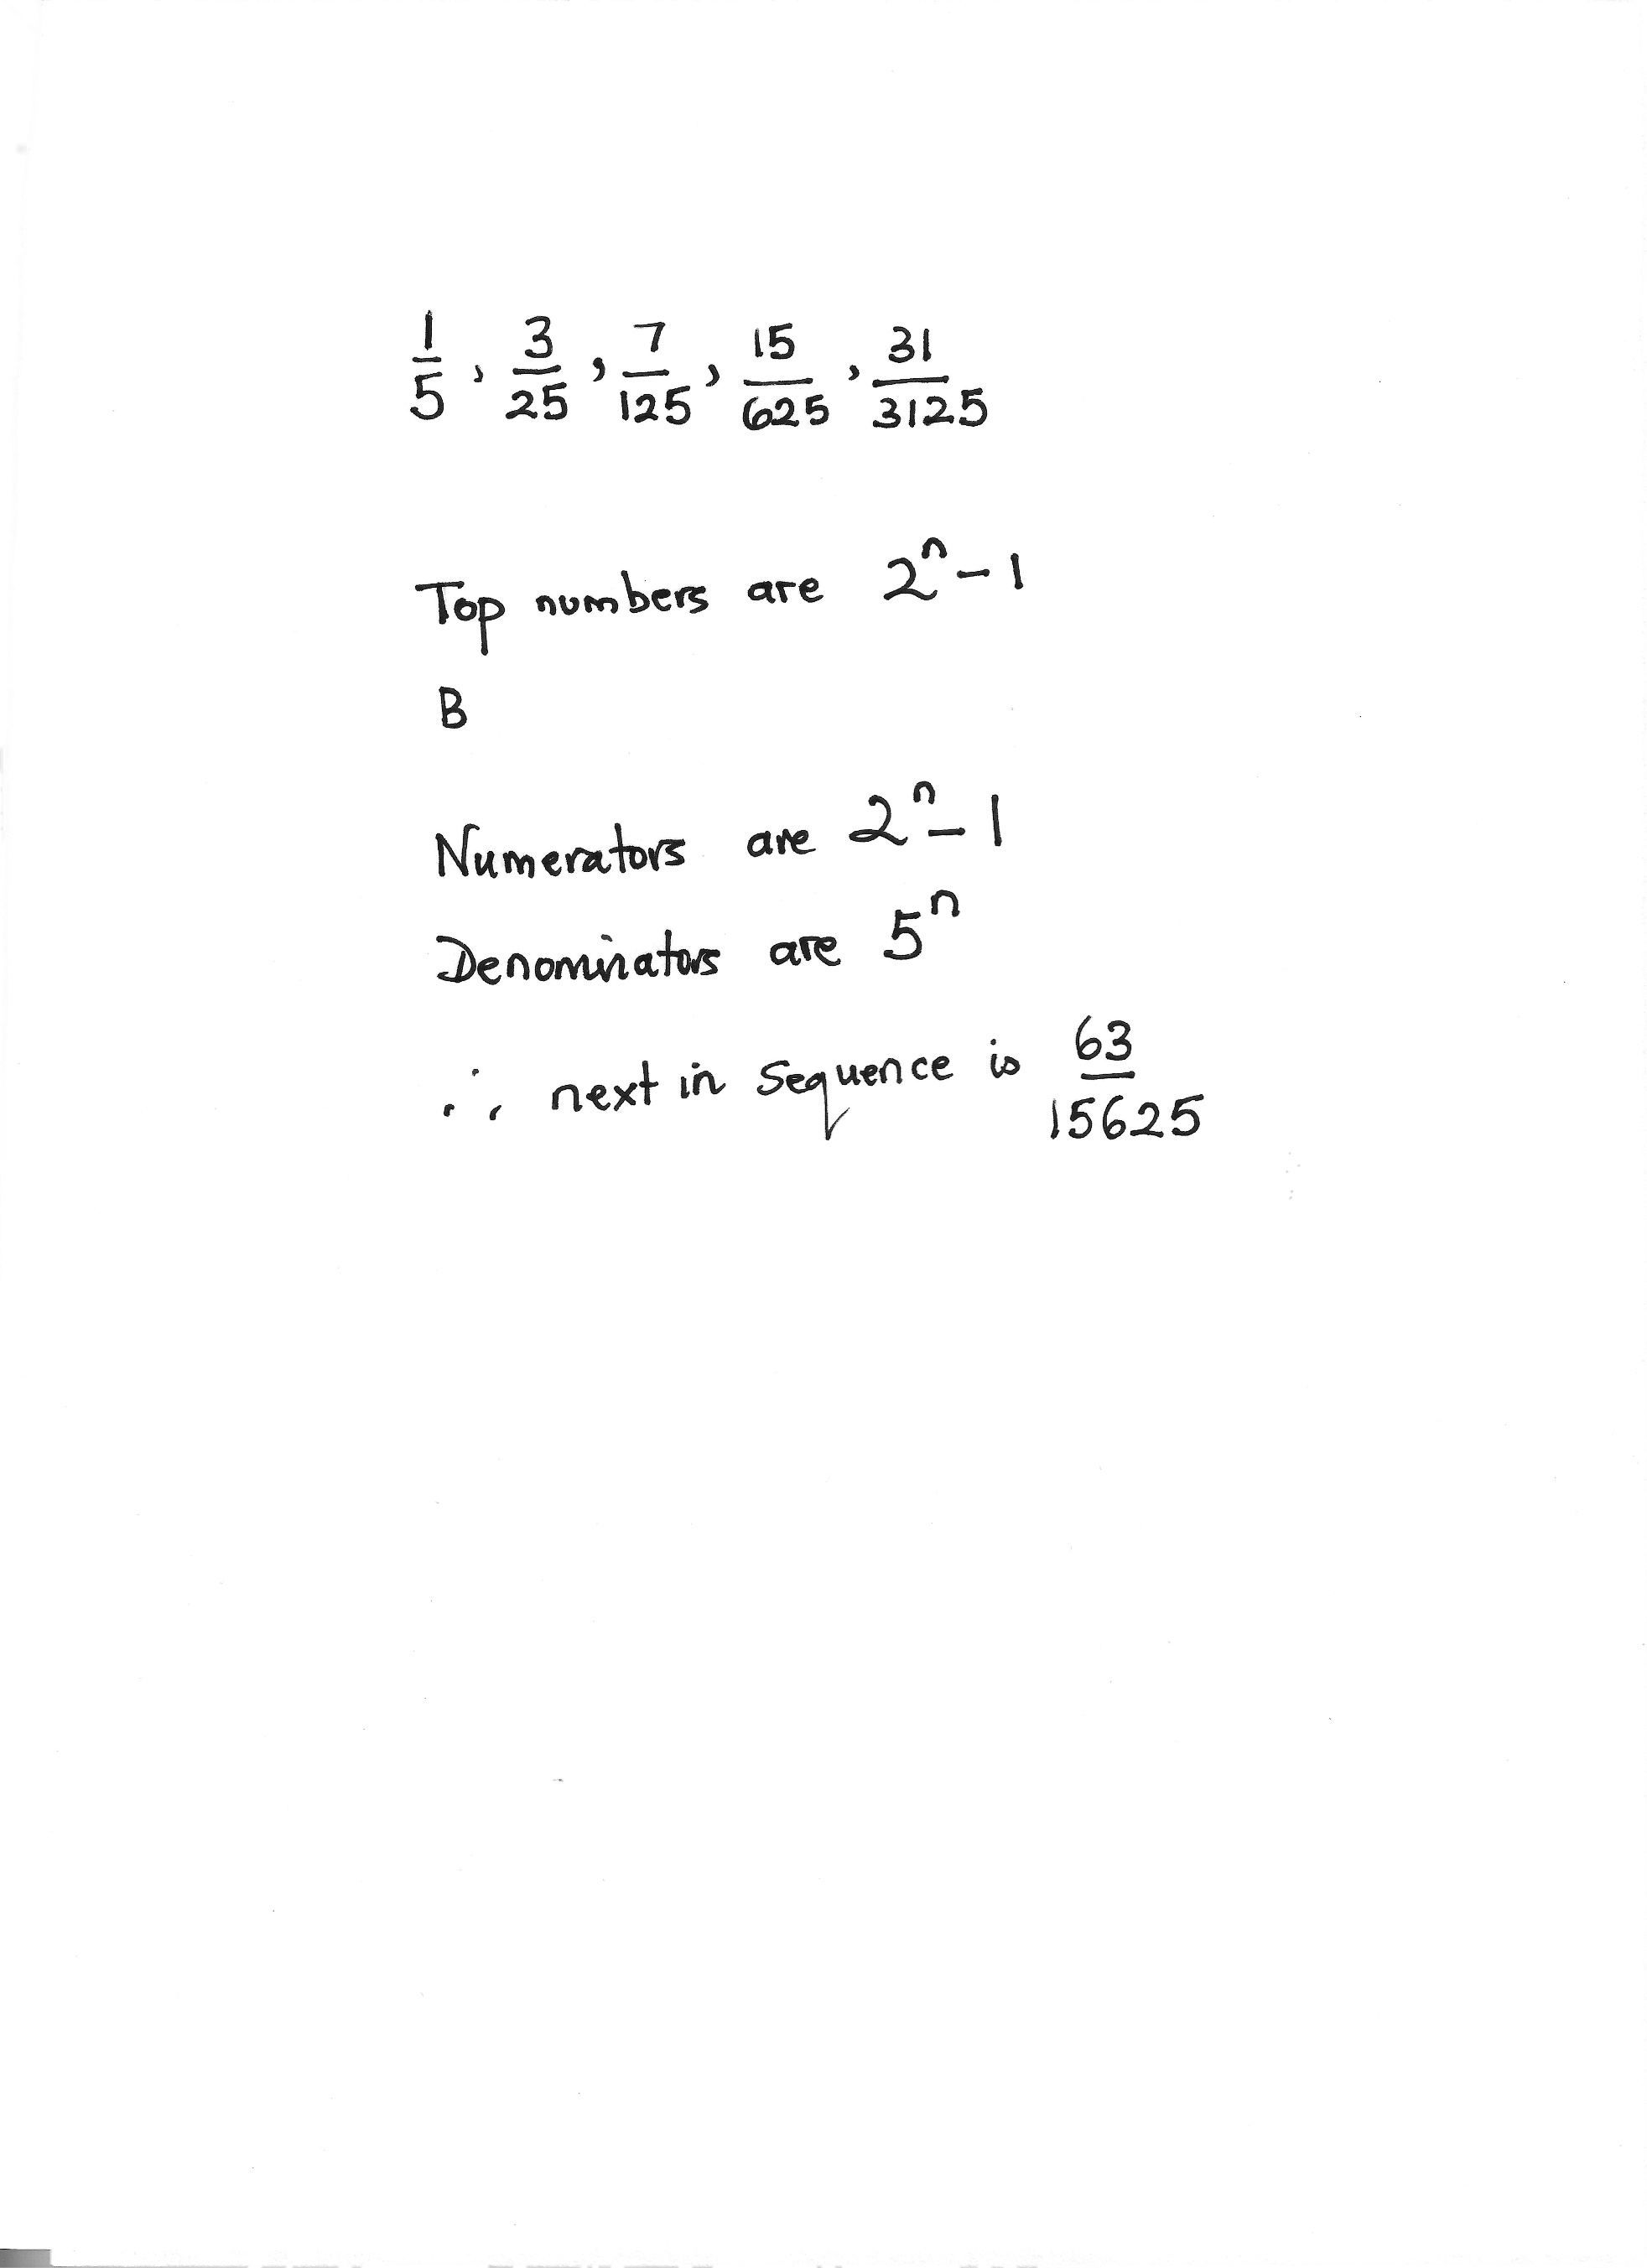 1/5, 3/25, 7/125, 15/625, 31/3125
Top numbers are 2^n - 1
B
Numerators are 2^n - 1
Denominators are 5^n
∴ next in sequence is 63/15625